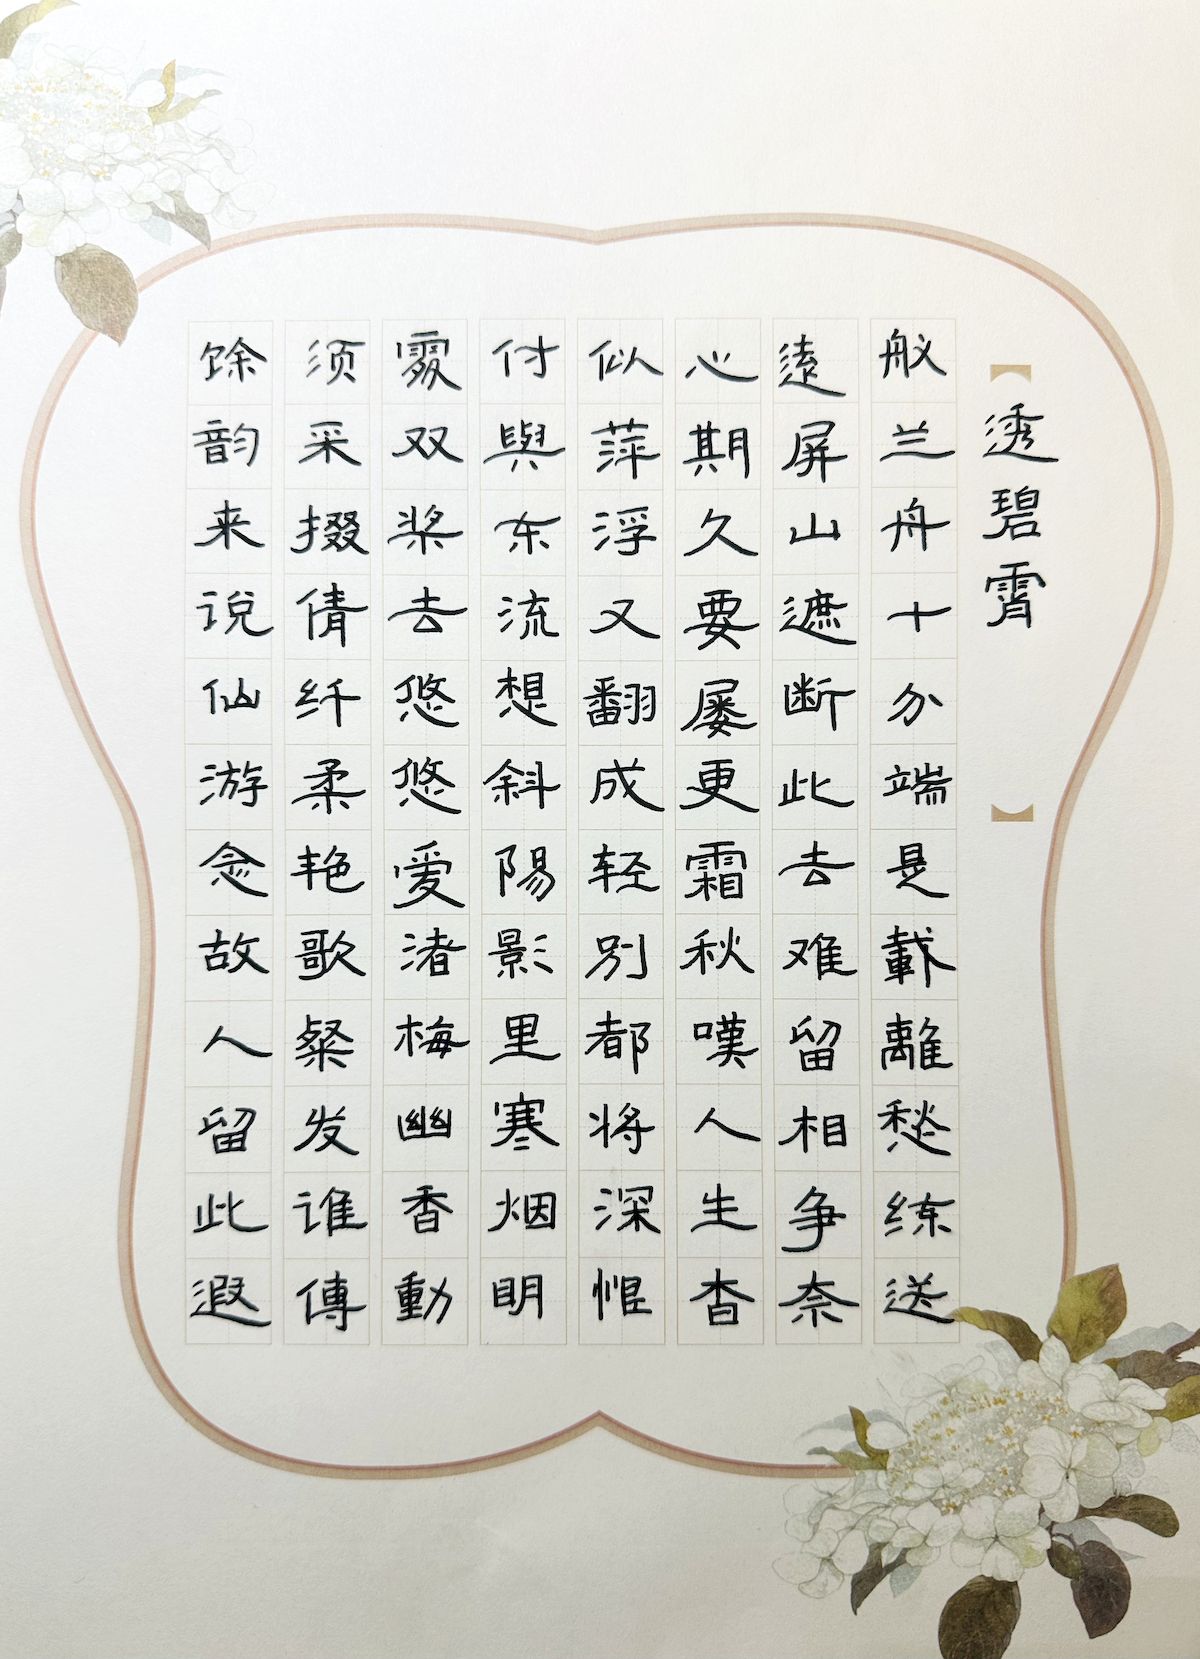 透碧霄
舣兰舟十分端是載離愁练送
遠屏山遮断此去难留相争奈
心期久要屡更霜秋嘆人生杳
似萍浮又翻成轻别都将深恨
付與东流想斜陽影里寒烟明
處双桨去悠悠爱渚梅幽香動
须采掇倩纤柔艳歌粲发谁傳
馀韵来说仙游念故人留此遐